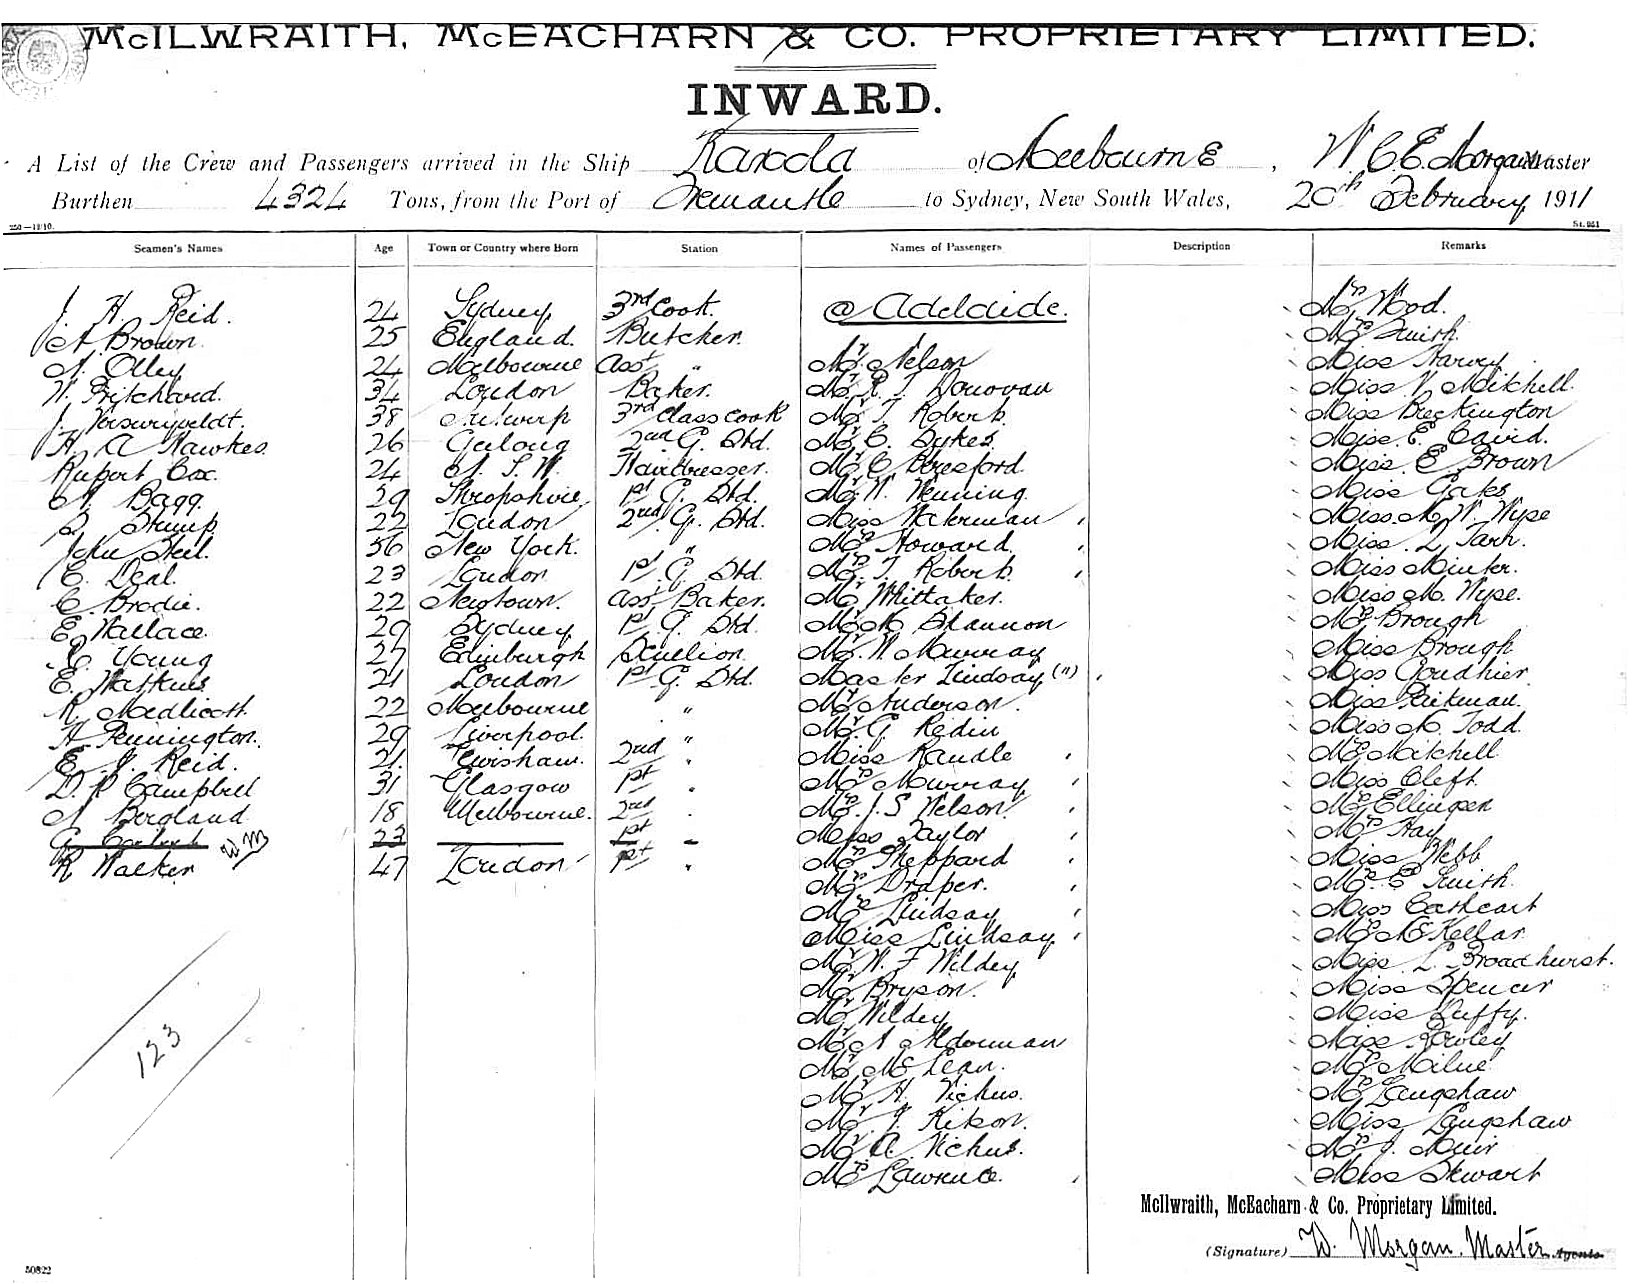 McILWRAITH, McEACHARN & CO. PROPRIETARY LIMITED.
INWARD.
A List of the Crew and Passengers arrived in the Ship Karoola of Melbourne, W. C. E. Morgan Master
Burthen 4324 Tons, from the Port of Fremantle to Sydney, New South Wales, 20th February 1911
250—12/10. St. 951
Seamen's Names Age Town or Country where Born Station Names of Passengers Description Remarks
J. H. Reid. 24 Sydney 3rd Cook. @ Adelaide. Mrs Wood.
A. Brown 25 England. Butcher. Mrs Smith.
A. Olley 24 Melbourne Asst " Mr. Nelson Miss Harvey
W. Pritchard. 34 London Baker. Mr R. J. Donovan Miss V. Mitchell
J. 38 Antwerp 3rd Class Cook Mr T. Roberts. Miss Breckington
H. A. Hawkes. 26 Geelong 2nd G. Std. Mr C. Sykes. Miss E. Caird.
Rupert Cox. 24 N. S. W. Hairdresser. Mr C. Beresford. Miss E. Brown
A. Bagg. 29 Shropshire 1st G. Std. Mr W. Wenning. Miss Oaks
S. Stump 22 London 2nd G. Std. Miss Wakeman Miss M. W. Wype
John Heil. 56 New York. " Mrs Howard. Miss L. Tarn.
C. Deal. 23 London 1st G. Std. Mrs T. Roberts. Miss Minter.
C. Brodie. 22 Newtown. Asst Baker. Mr Whittaker. Miss M. Wype.
E. Wallace. 29 Sydney 1st G. Std. Mr M. Shannon Mrs Brough
R. Young 27 Edinburgh Scullion. Mr. W. Murray Miss Brough
E. Watkins 21 London 1st G. Std. Master Lindsay (") Miss Goudhier
R. Medlicott. 22 Melbourne " Mr Anderson. Miss Pickman.
H. Pennington. 29 Liverpool. " Mr. G. Redin Miss M. Todd.
E. J. Reid. 21. Lewisham. 2nd " Miss Randle Mrs Mitchell
D. R. Campbell 31 Glasgow 1st " Mrs Murray Miss Cleft.
A. Bergland 18 Melbourne. 2nd " Mrs J. S. Nelson. Mrs Ellingsen
G. 23 1st Miss Taylor Mrs Hay
R. Walker WM 47 London 1st " Mrs Sheppard Miss Webb
Mrs Draper. Mrs E. Smith.
Mrs Lindsay Miss Cathcart
Miss Lindsay Mrs McKellar
Mr W. F. Wildey Miss L. Broadhurst.
Mr Bryson. Miss Spencer
Mr Wildey Miss Duffy.
Mr A. Alderman Miss Rowley
Mr McLean. Mrs Milne
Mr H. Vickus. Mrs Langshaw
Mr J. Kitson. Miss Langshaw
Mr A. Vickus. Mrs J. Muir
Mrs Lawrence. Miss Stewart
123
McIlwraith, McEacharn & Co. Proprietary Limited.
(Signature) W. Morgan. Master Agents.
50822